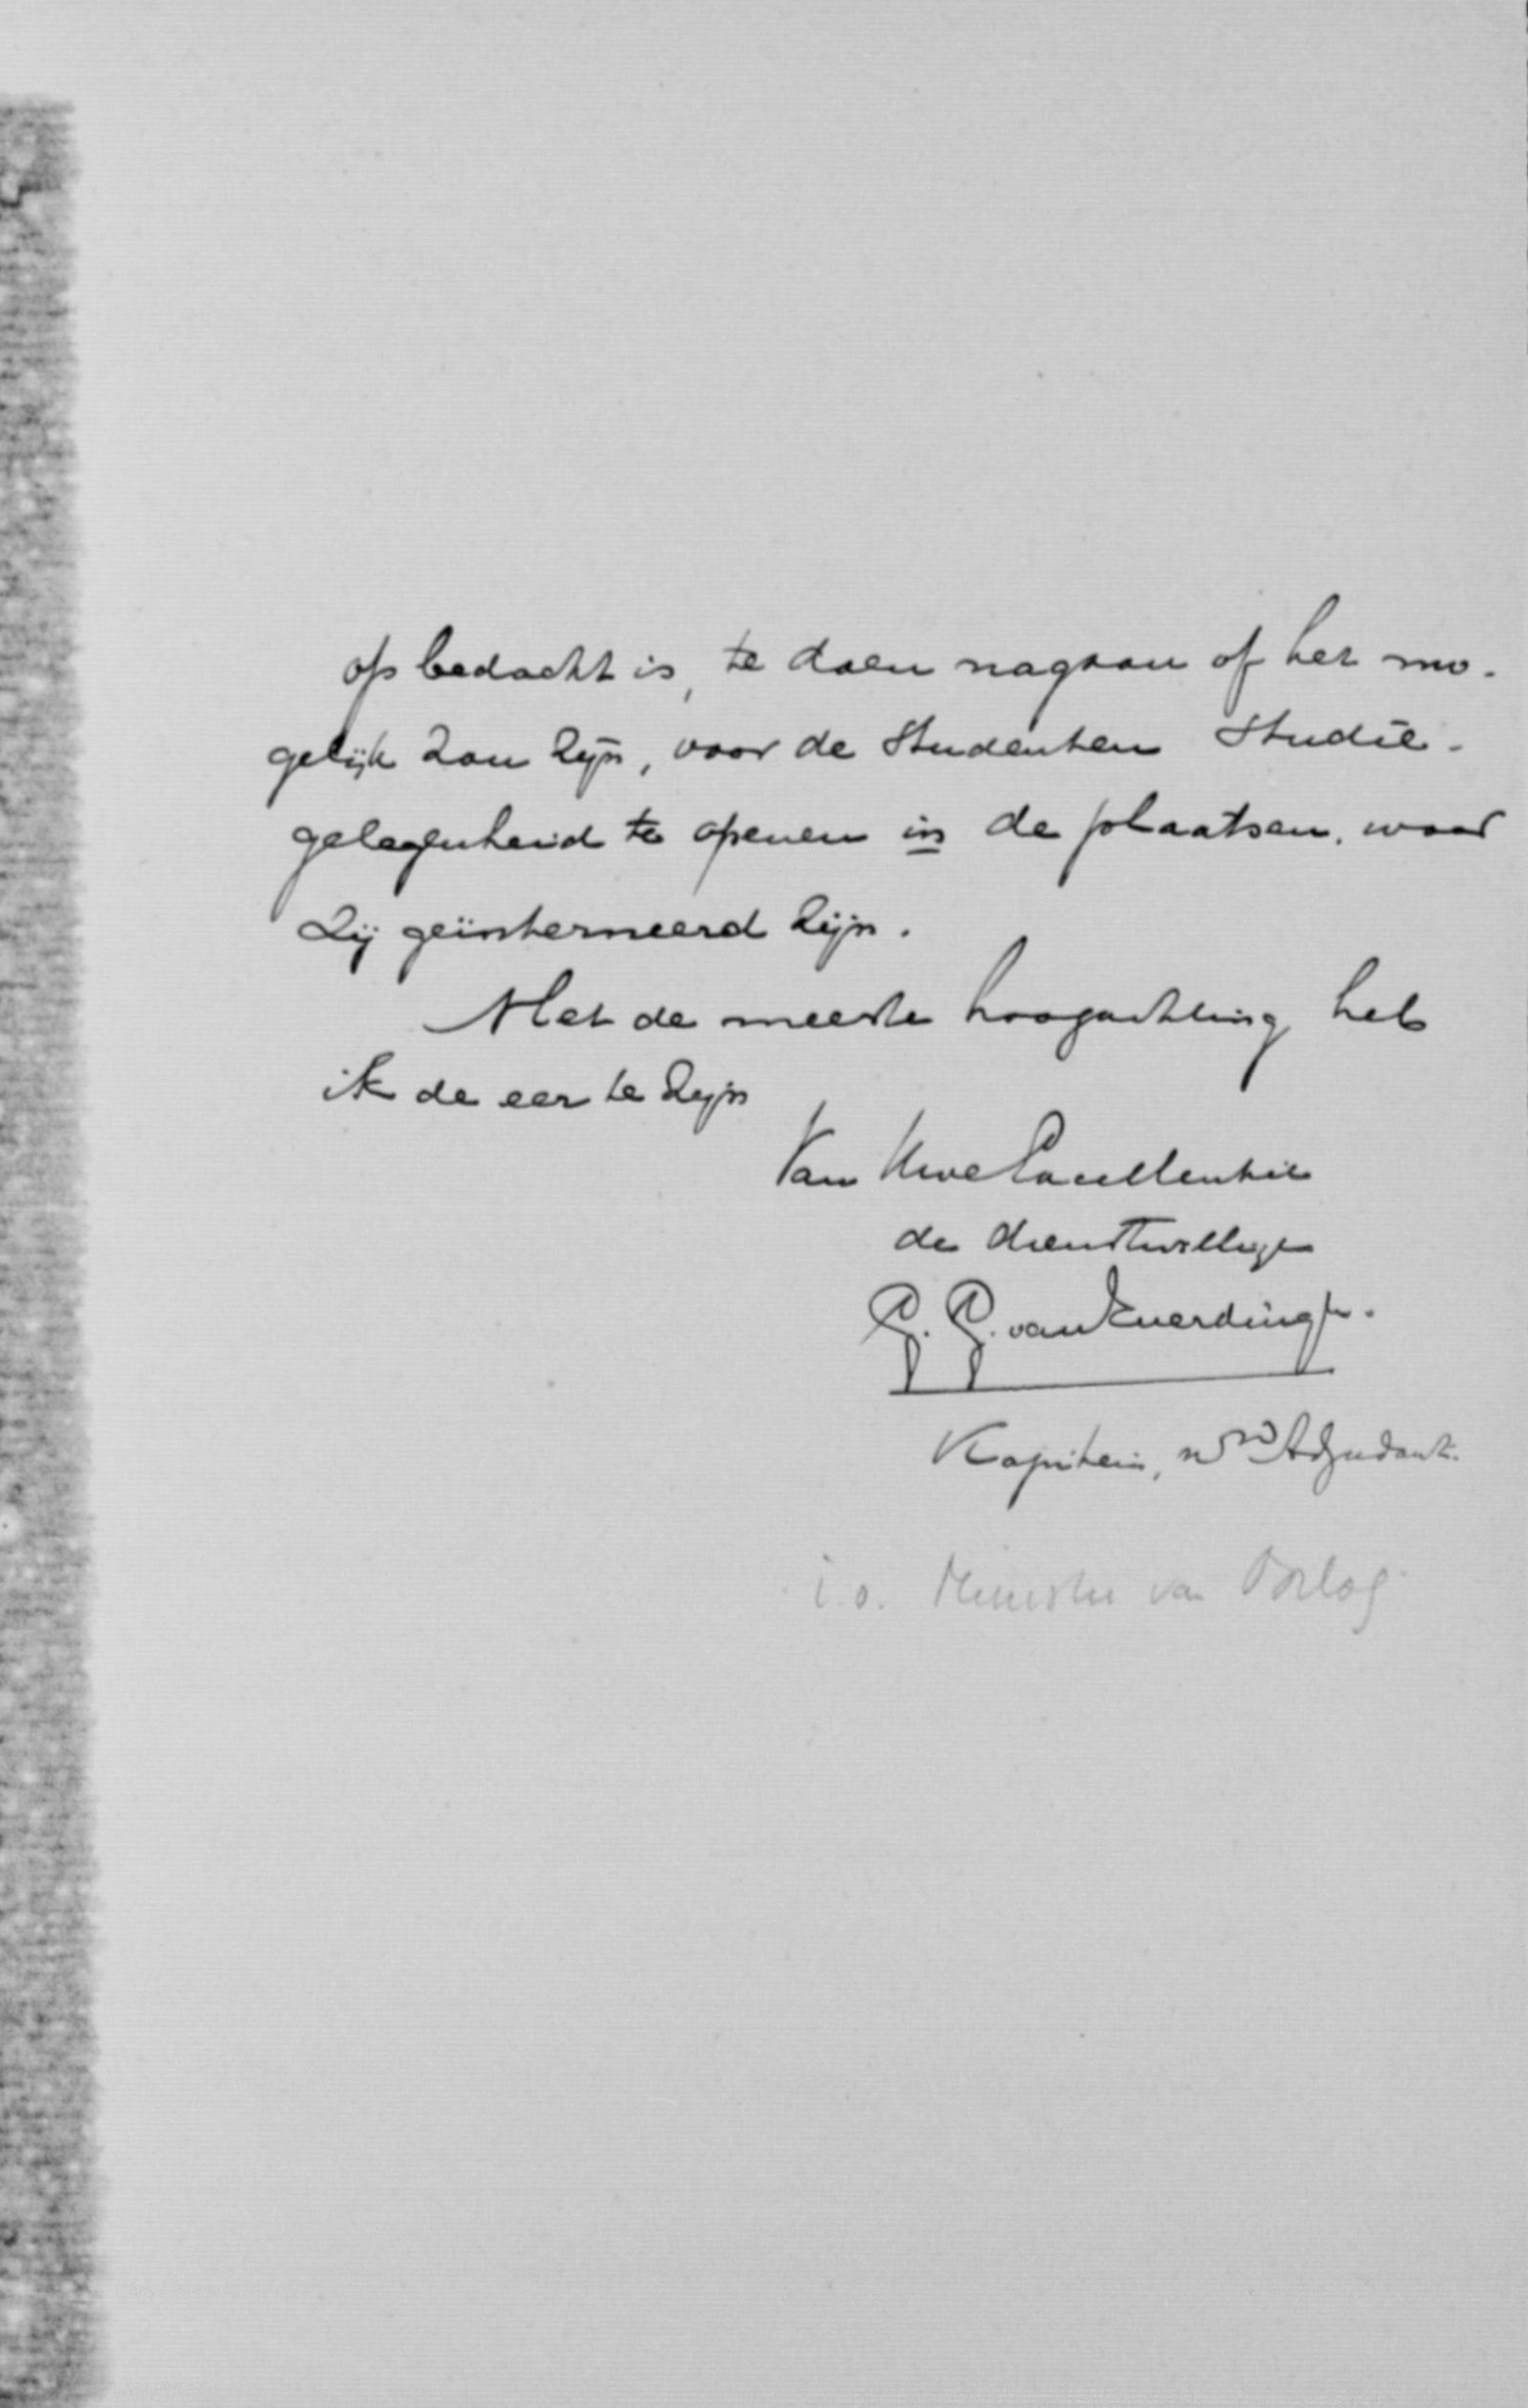 op bedacht is, te doen nagaan of het mo-
gelijk zou zijn, voor de studenten studie-
gelegenheid te openen in de plaatsen, waar
zij geïnterneerd zijn.
Met de meeste hoogachting heb
ik de eer te zijn
Van Uwe Excellentie
de dienstwillige
G. G. van Everdingen.
Kapitein, Adjudant.
i.o. Minister van Oorlog